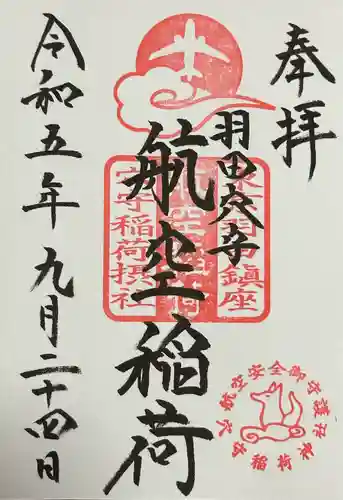 奉拝
羽田穴守
航空稲荷
令和五年九月二十四日
東京羽田鎮座
穴守稲荷摂社
航空安全御守護
穴守稲荷